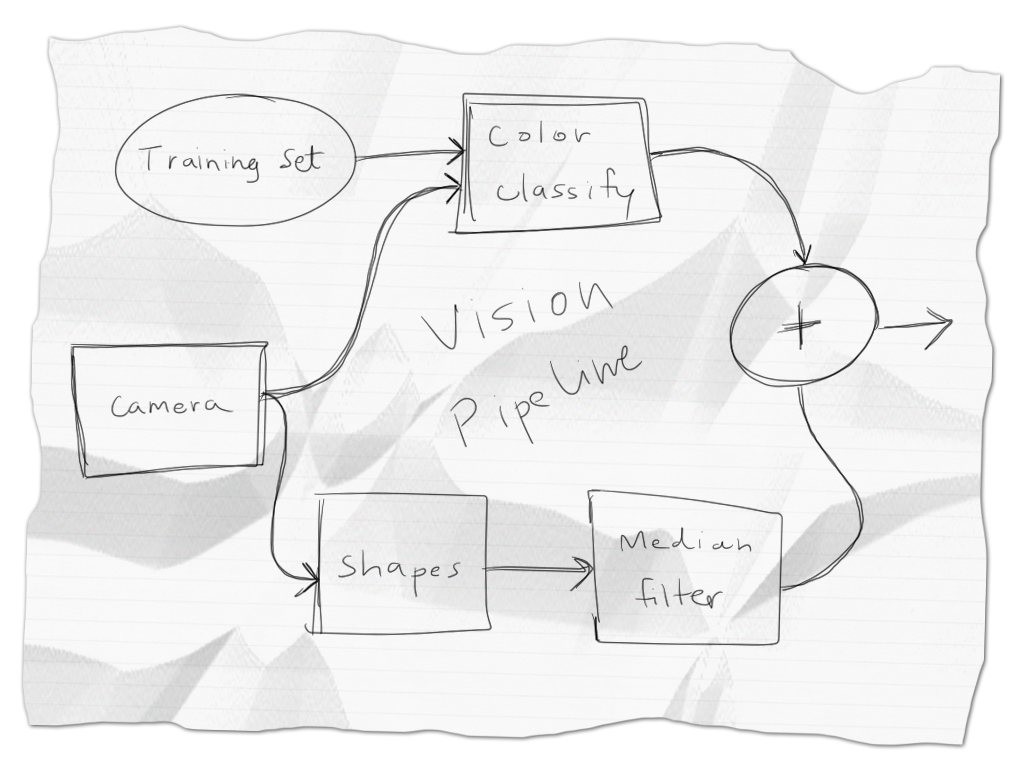 Training Set
Color
Classify
Vision
Pipeline
Camera
Shapes
Median
filter
+